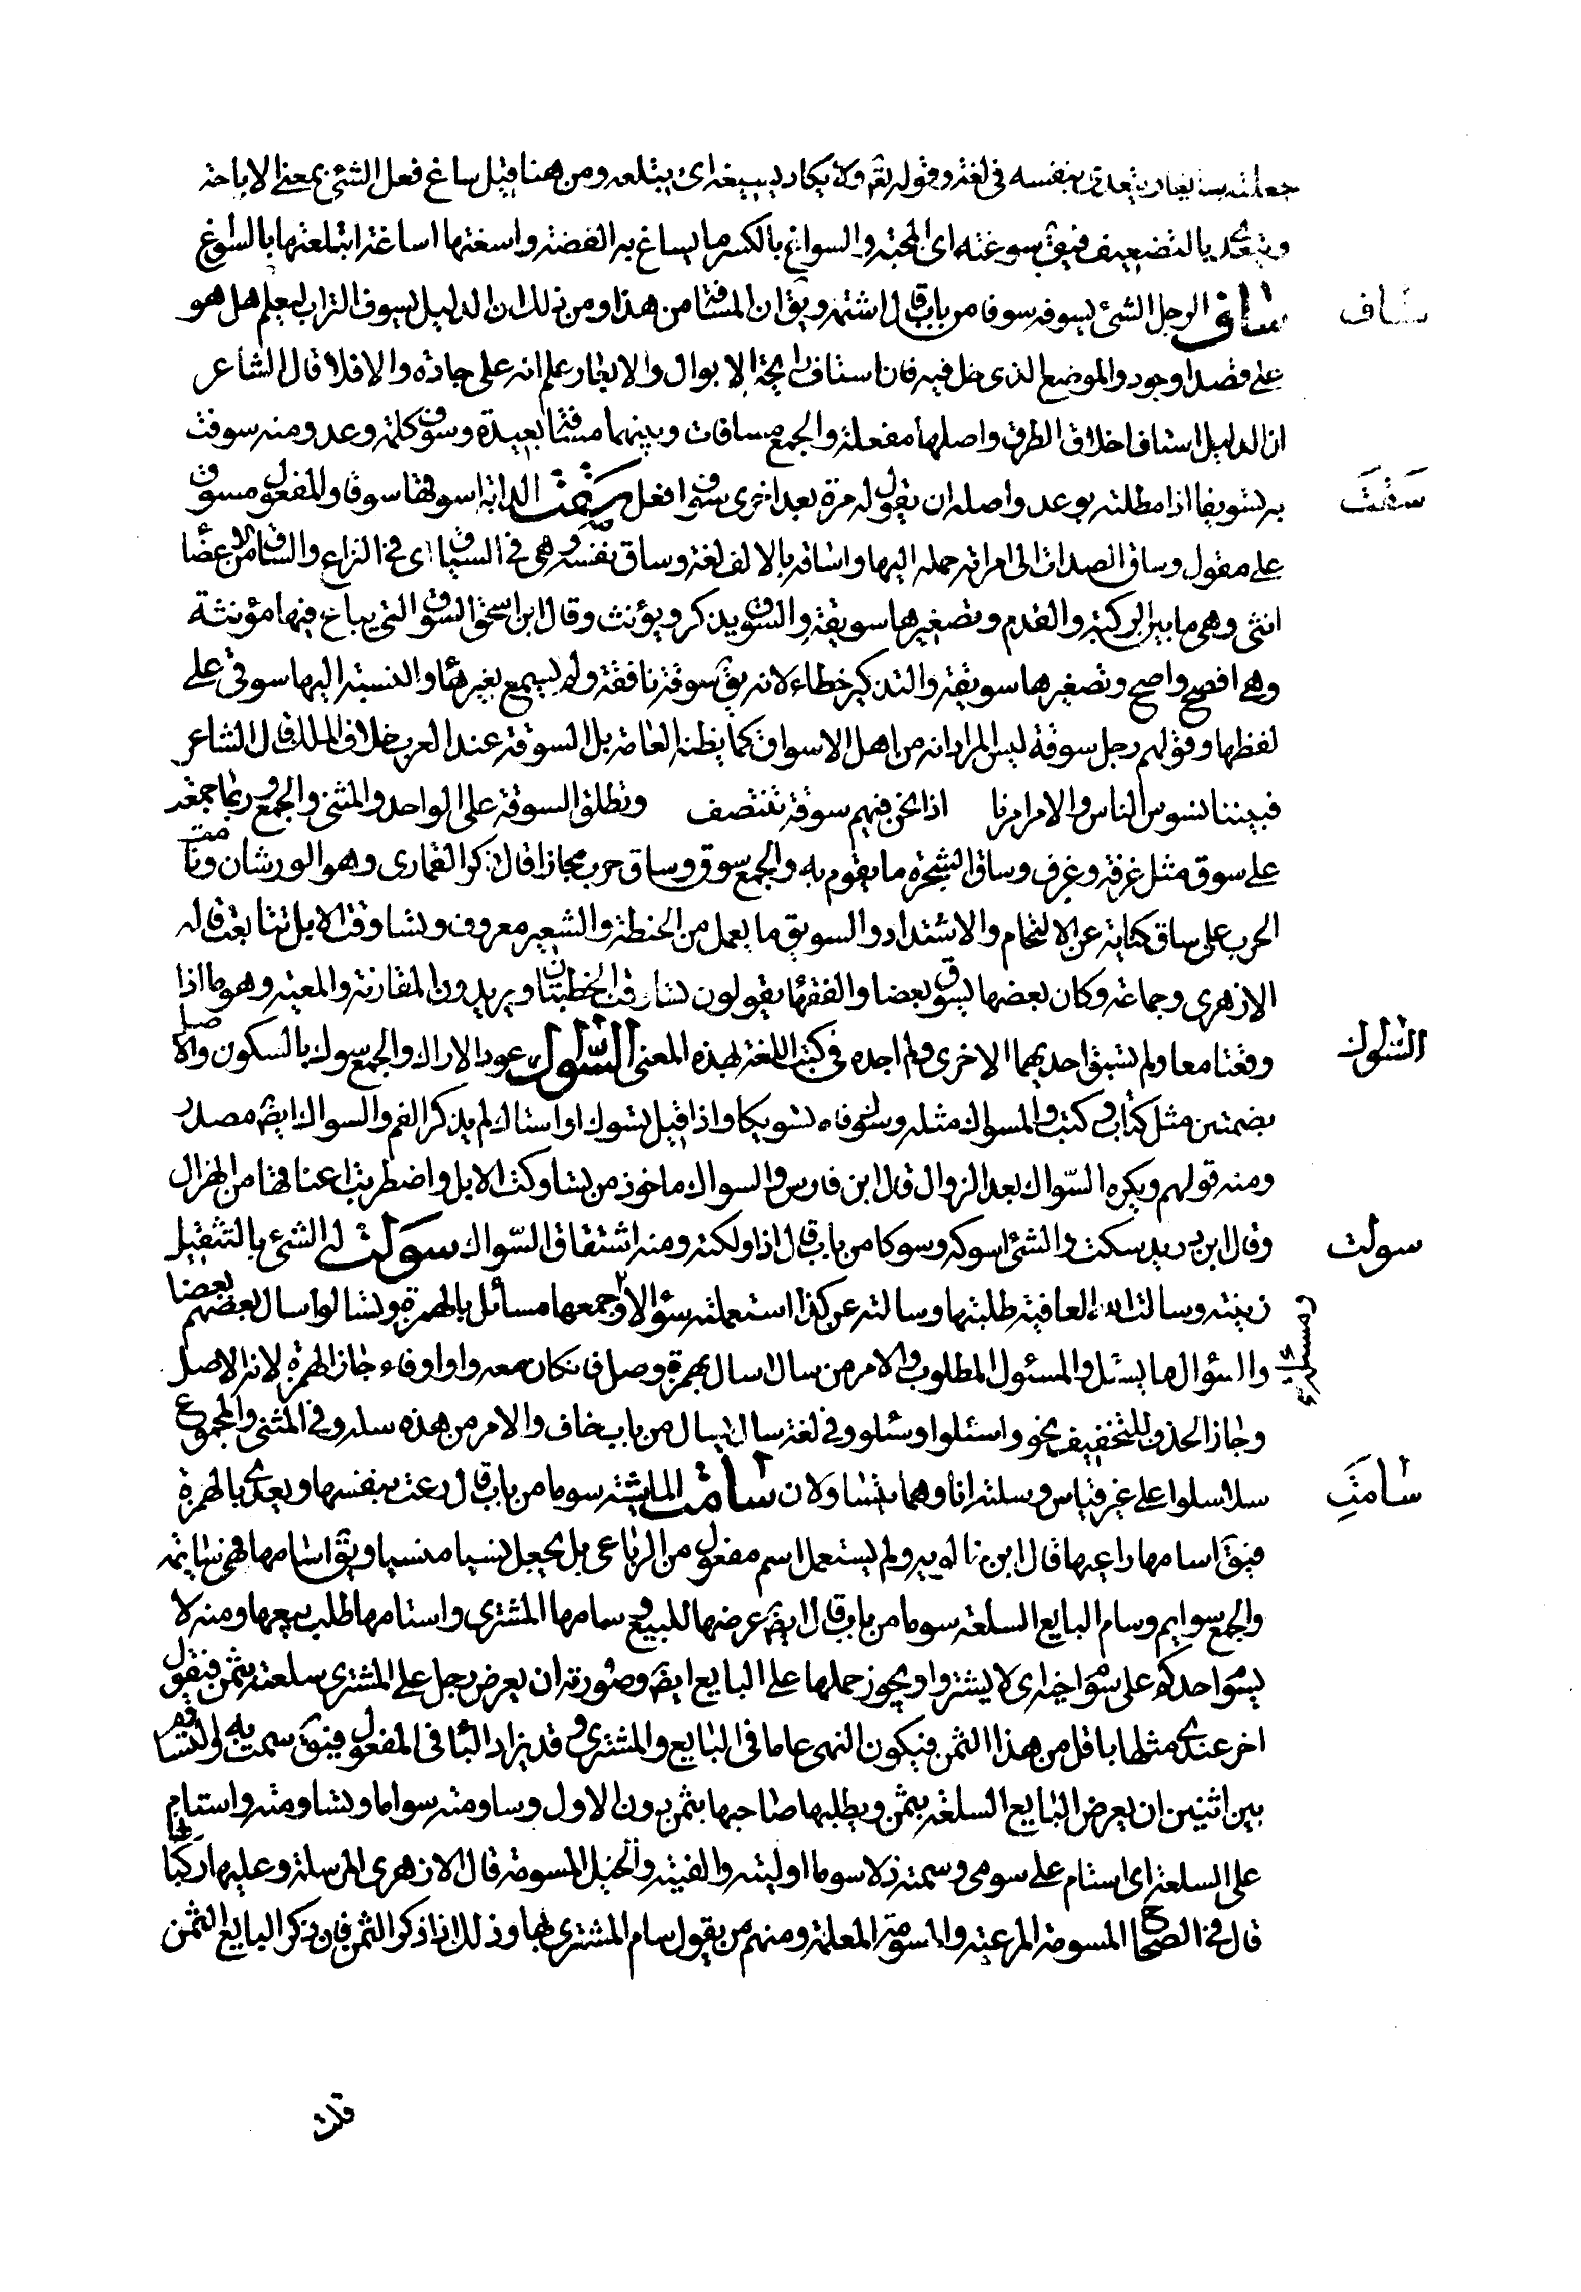 جعلته سايغا ويتعدى بنفسه فى لغة وقوله تع ولا يكاد يسيغه اى يبتلعه ومن هنا قيل ساغ فعل الشئ بمعنى الاباحة
ويتعدى بالتضعيف فيق سوغته اى ابحته والسواغ بالكسر ما يساغ به الغصة واسغتها اساغة ابتلعتها بالسواغ
ساف
ساف الرجل الشئ يسوفه سوفا من باب قال اشتمه ويق ان المسافة من هذا ومن ذلك ان الدليل يسوف التراب ليعلم هل هو
على قصد او جور والموضع الذى ضل فيه فان استاف رائحة الابوال والابعار علم انه على جادة والا فلا قال الشاعر
ان الدليل استاف اخلاق الطرق واصلها مفعلة والجمع مسافات وبينهما مسافة بعيدة وسوف كلمة وعد ومنه سوفت
سقت
به تسويفا اذا مطلته بوعد واصله ان يقول له مرة بعد اخرى سوف افعل سقت الدابة اسوقها سوقا والمفعول مسوق
على مقول وساق الصداق الى امراته حمله اليها واساقه بالالف لغة وساق نفسه وهى فى السياق اى فى النزاع والساق من الاعضا
انثى وهى ما بين الركبة والقدم وتصغيرها سويقة والسوق يذكر ويؤنث وقال ابن اسحق السوق التى يباع فيها مؤنثة
وهى افصح واصح وتصغيرها سويقة والتذكير خطاء لانه يق سوقة نافقة ولم يسمع بغير هما والنسبة اليها سوقى على
لفظها وقولهم رجل سوقة ليس المراد انه من اهل الاسواق كما يظنه العامة بل السوقة عند العرب خلاف الملك قال الشاعر
فبيننا نسوس الناس والامر امرنا اذا نحن فيهم سوقة نتنصف وتطلق السوقة على الواحد والمثنى والجمع وربما جمعت
على سوق مثل غرفة وغرف وساق الشجرة ما يقوم به والجمع سوق وساق حر مجازا قال ذكر القمارى وهو الورشان وقامت
الحرب على ساق كناية عن الالتحام والاشتداد والسويق ما يعمل من الحنطة والشعير معروف وتساوقت الابل تتابعت قاله
الازهرى وجماعة وكان بعضها يسوق بعضا والفقهاء يقولون تساوقت الخطبتان ويريدون المقارنة والمعية وهو ما اذا
السواك
وقعتا معا ولم تسبق احديهما الاخرى ولم اجده فى كتب اللغة بهذه المعنى السواك عود الاراك والجمع سوك بالسكون والاصل
بضمتين مثل كتاب وكتب والمسواك مثله وسوك فاه تسويكا واذا قيل تسوك او استاك لم يذكر الفم والسواك ايض مصدر
ومنه قولهم ويكره السواك بعد الزوال قال ابن فارس والسواك ماخوذ من تساوكت الابل واضطربت اعناقها من الهزال
سولت
وقال ابن دريد سكت الشئ اسوكه وسوكا من باب قال اذا دلكته ومنه اشتقاق السواك سولت له الشئ بالتثقيل
زينته وسالت الله العافية طلبتها وسالته عن كذا استعلمته سؤالا وجمعها مسائل بالهمزة وتسالوا سال بعضهم بعضا
والسؤال ما يسئل والمسئول المطلوب والامر من سال اسال بهمزة وصل فان كان معه واو او فاء جاز الهمزة لانه الاصل
وجاز الحذف للتخفيف نحو واسئلوا وسئلو وفى لغة سال يسال من باب خاف والامر من هذه سل وفى المثنى والمجموع
سامت
سلا سلوا على غير قياس وسلته انا وهما يتساولان سامت الماشية سوما من باب قال رعت بنفسها ويعدى بالهمزة
فيق اسامها راعيها قال ابن خالويه ولم يستعمل اسم مفعول من الرباعى بل يجعل نسيا منسيا ويق اسامها فهى سائمة
والجمع سوايم وسام البايع السلعة سوما من باب قال ايض عرضها للبيع وسامها المشترى واستامها طلب بيعها ومنه لا
يسوم احدكم على سوم اخيه اى لا يشترو ويجوز حملها على البايع ايض وصورته ان يعرض رجل على المشترى سلعته بثمن فيقول
اخر عندى مثلها باقل من هذا الثمن فيكون النهى عاما فى البايع والمشترى وقد يزاد الباء فى المفعول فيق سمت به والتساوم
بين اثنين ان يعرض البايع السلعة بثمن ويطلبها صاحبها بثمن دون الاول وساومته سواما وتساومته واستام
على السلعة اى استام على سومى وسمته ذلا سوما اوليته والفيته والخيل المسومة قال الازهرى المرسلة وعليها ركبانها
قال فى الصحاح المسومة المرعية والمسومة المعلمة ومنهم من يقول سام المشترى بها وذلك اذا ذكر الثمن فان ذكر البايع الثمن
قلت